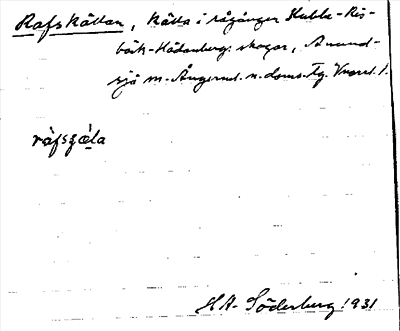 Rafskällan, källa i rågången Kubbe-Ris-
bäck-Hädanberg: skogar, Anund-
sjö m. Ångerml. n. doms. Tg.
ràfsʒǽla
H. A. Söderberg 1931